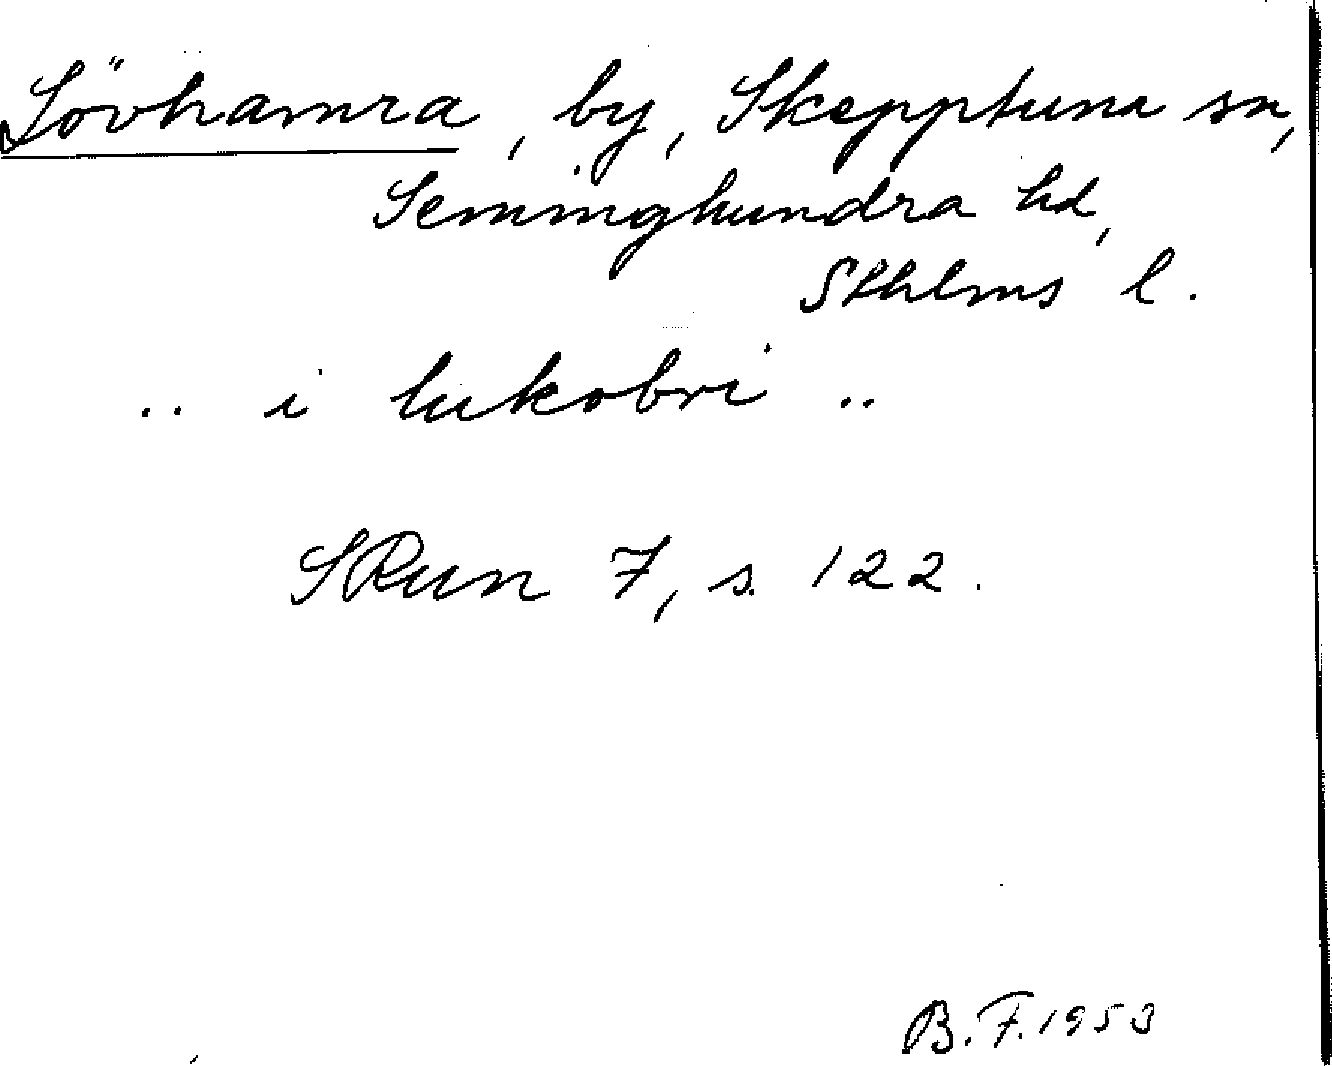 Lövhamra, by, Skepptuna sn,
Seminghundra hd,
Sthlms l.
.. i lukobri ..
SRun 7, s. 122.
B.F. 1953